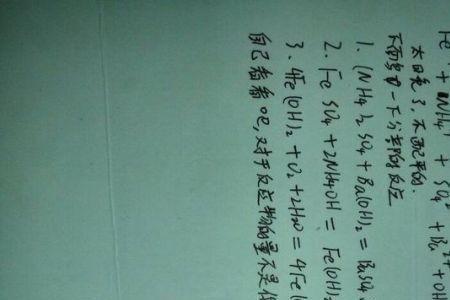 Fe + NH₄ + SO₄²⁻ + Ba²⁺ + OH
太晚了,不
下面写一下分步的反应
1. (NH₄)₂SO₄ + Ba(OH)₂ = BaSO₄
2. FeSO₄ + 2NH₄OH = Fe(OH)₂
3. 4Fe(OH)₂ + O₂ + 2H₂O = 4Fe(
自己看看吧,对于反应物的量不是